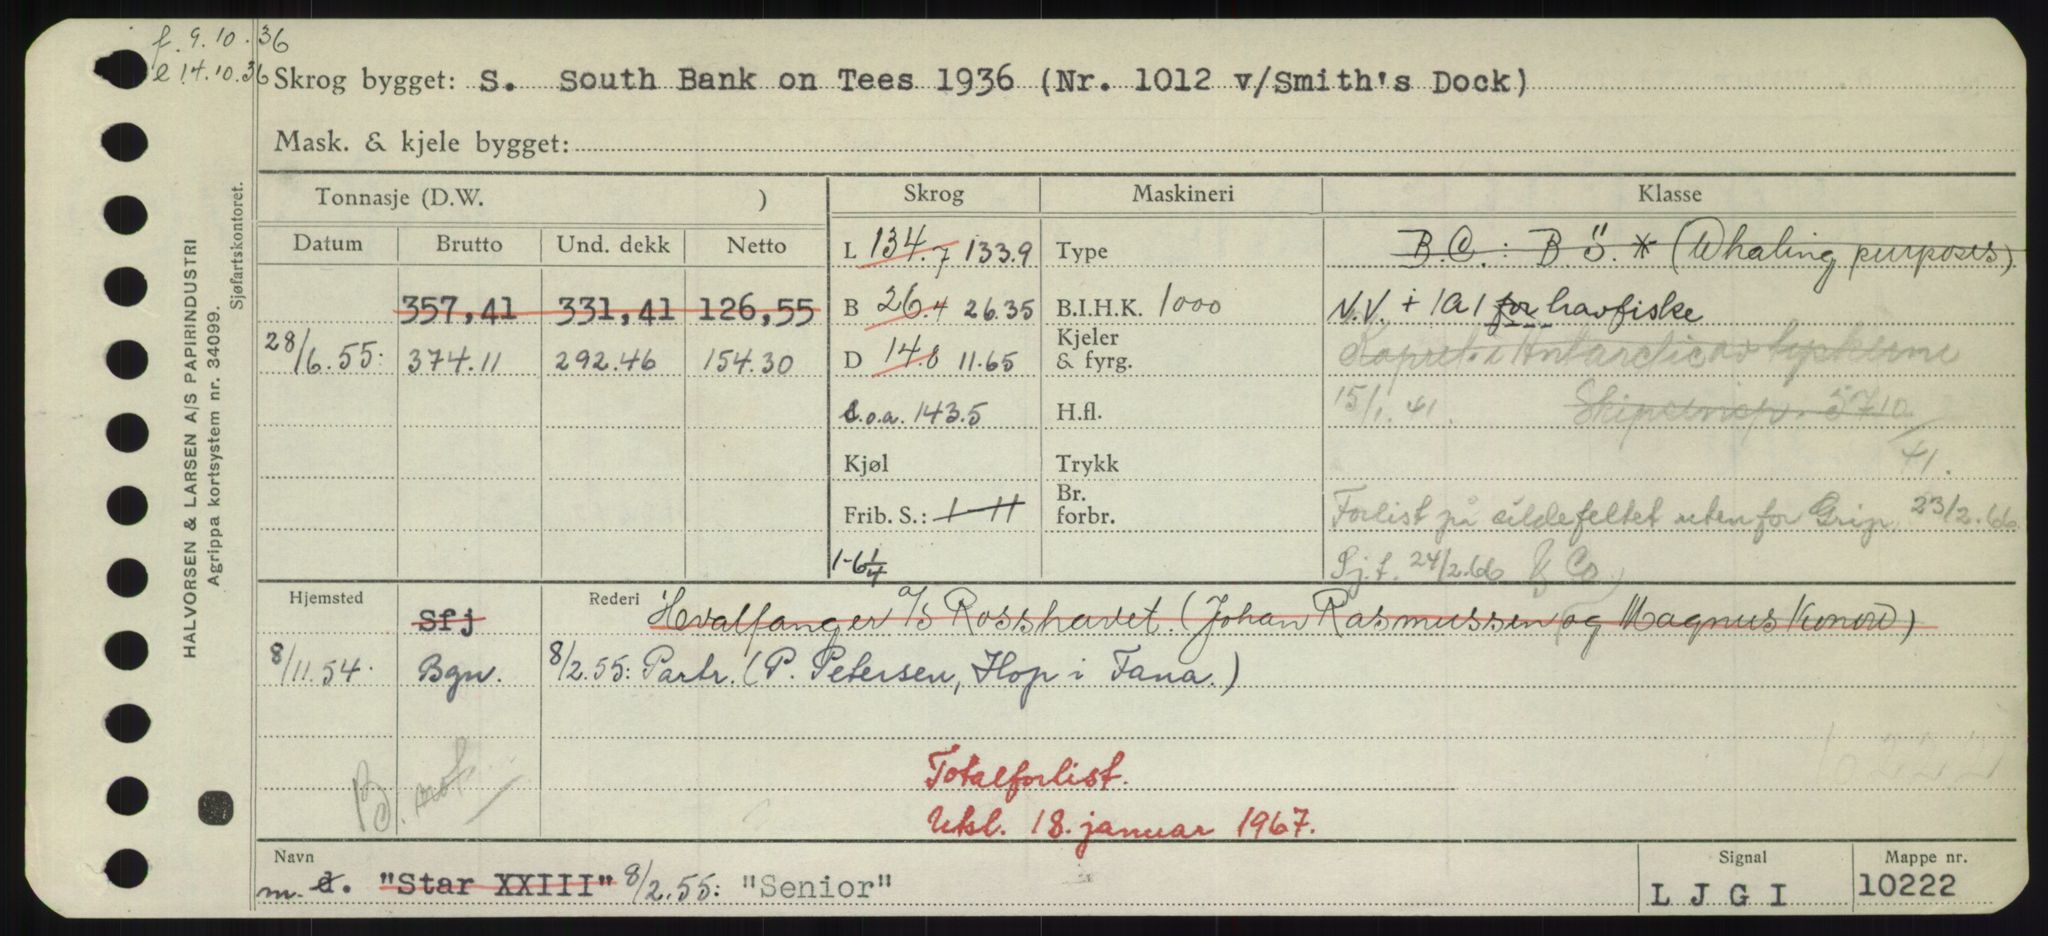 f. 9.10.36
l 14.10.36
Skrog bygget: S. South Bank on Tees 1936 (Nr. 1012 v/Smith's Dock)
Mask. & kjele bygget:
HALVORSEN & LARSEN A/S PAPIRINDUSTRI
Agrippa kortsystem nr. 34099.
Sjøfartskontoret.
Tonnasje (D.W. ) Skrog Maskineri Klasse
Datum Brutto Und. dekk Netto L 134.7 133.9 Type B.C.: B.S.* (Whaling purposes)
357,41 331,41 126,55 B 26.4 26.35 B.I.H.K. 1000 N.V. + 1A1 for havfiske
28/6.55: 374.11 292.46 154.30 D 14.8 11.65 Kjeler & fyrg. Kapret i Antarctic av tyskerne
L.o.a. 143.5 H.fl. 15/1.41. 5710/41.
Kjøl Trykk
Frib. S.: 1-11 Br. forbr. Forlist på sildefeltet utenfor Grip 23/2.66.
1-6 1/4 Sj.t. 24/2.66 & Co.)
Hjemsted Sfj Rederi Hvalfanger a/s Rosshavet. (Johan Rasmussen og Magnus Konow)
8/11.54. Bgn. 8/2.55: Partr. (P. Petersen, Hop i Fana.)
B. mot.
Totalforlist.
Utsl. 18. januar 1967.
Navn Signal Mappe nr.
m. d. "Star XXIII" 8/2.55: "Senior" L J G I 10222